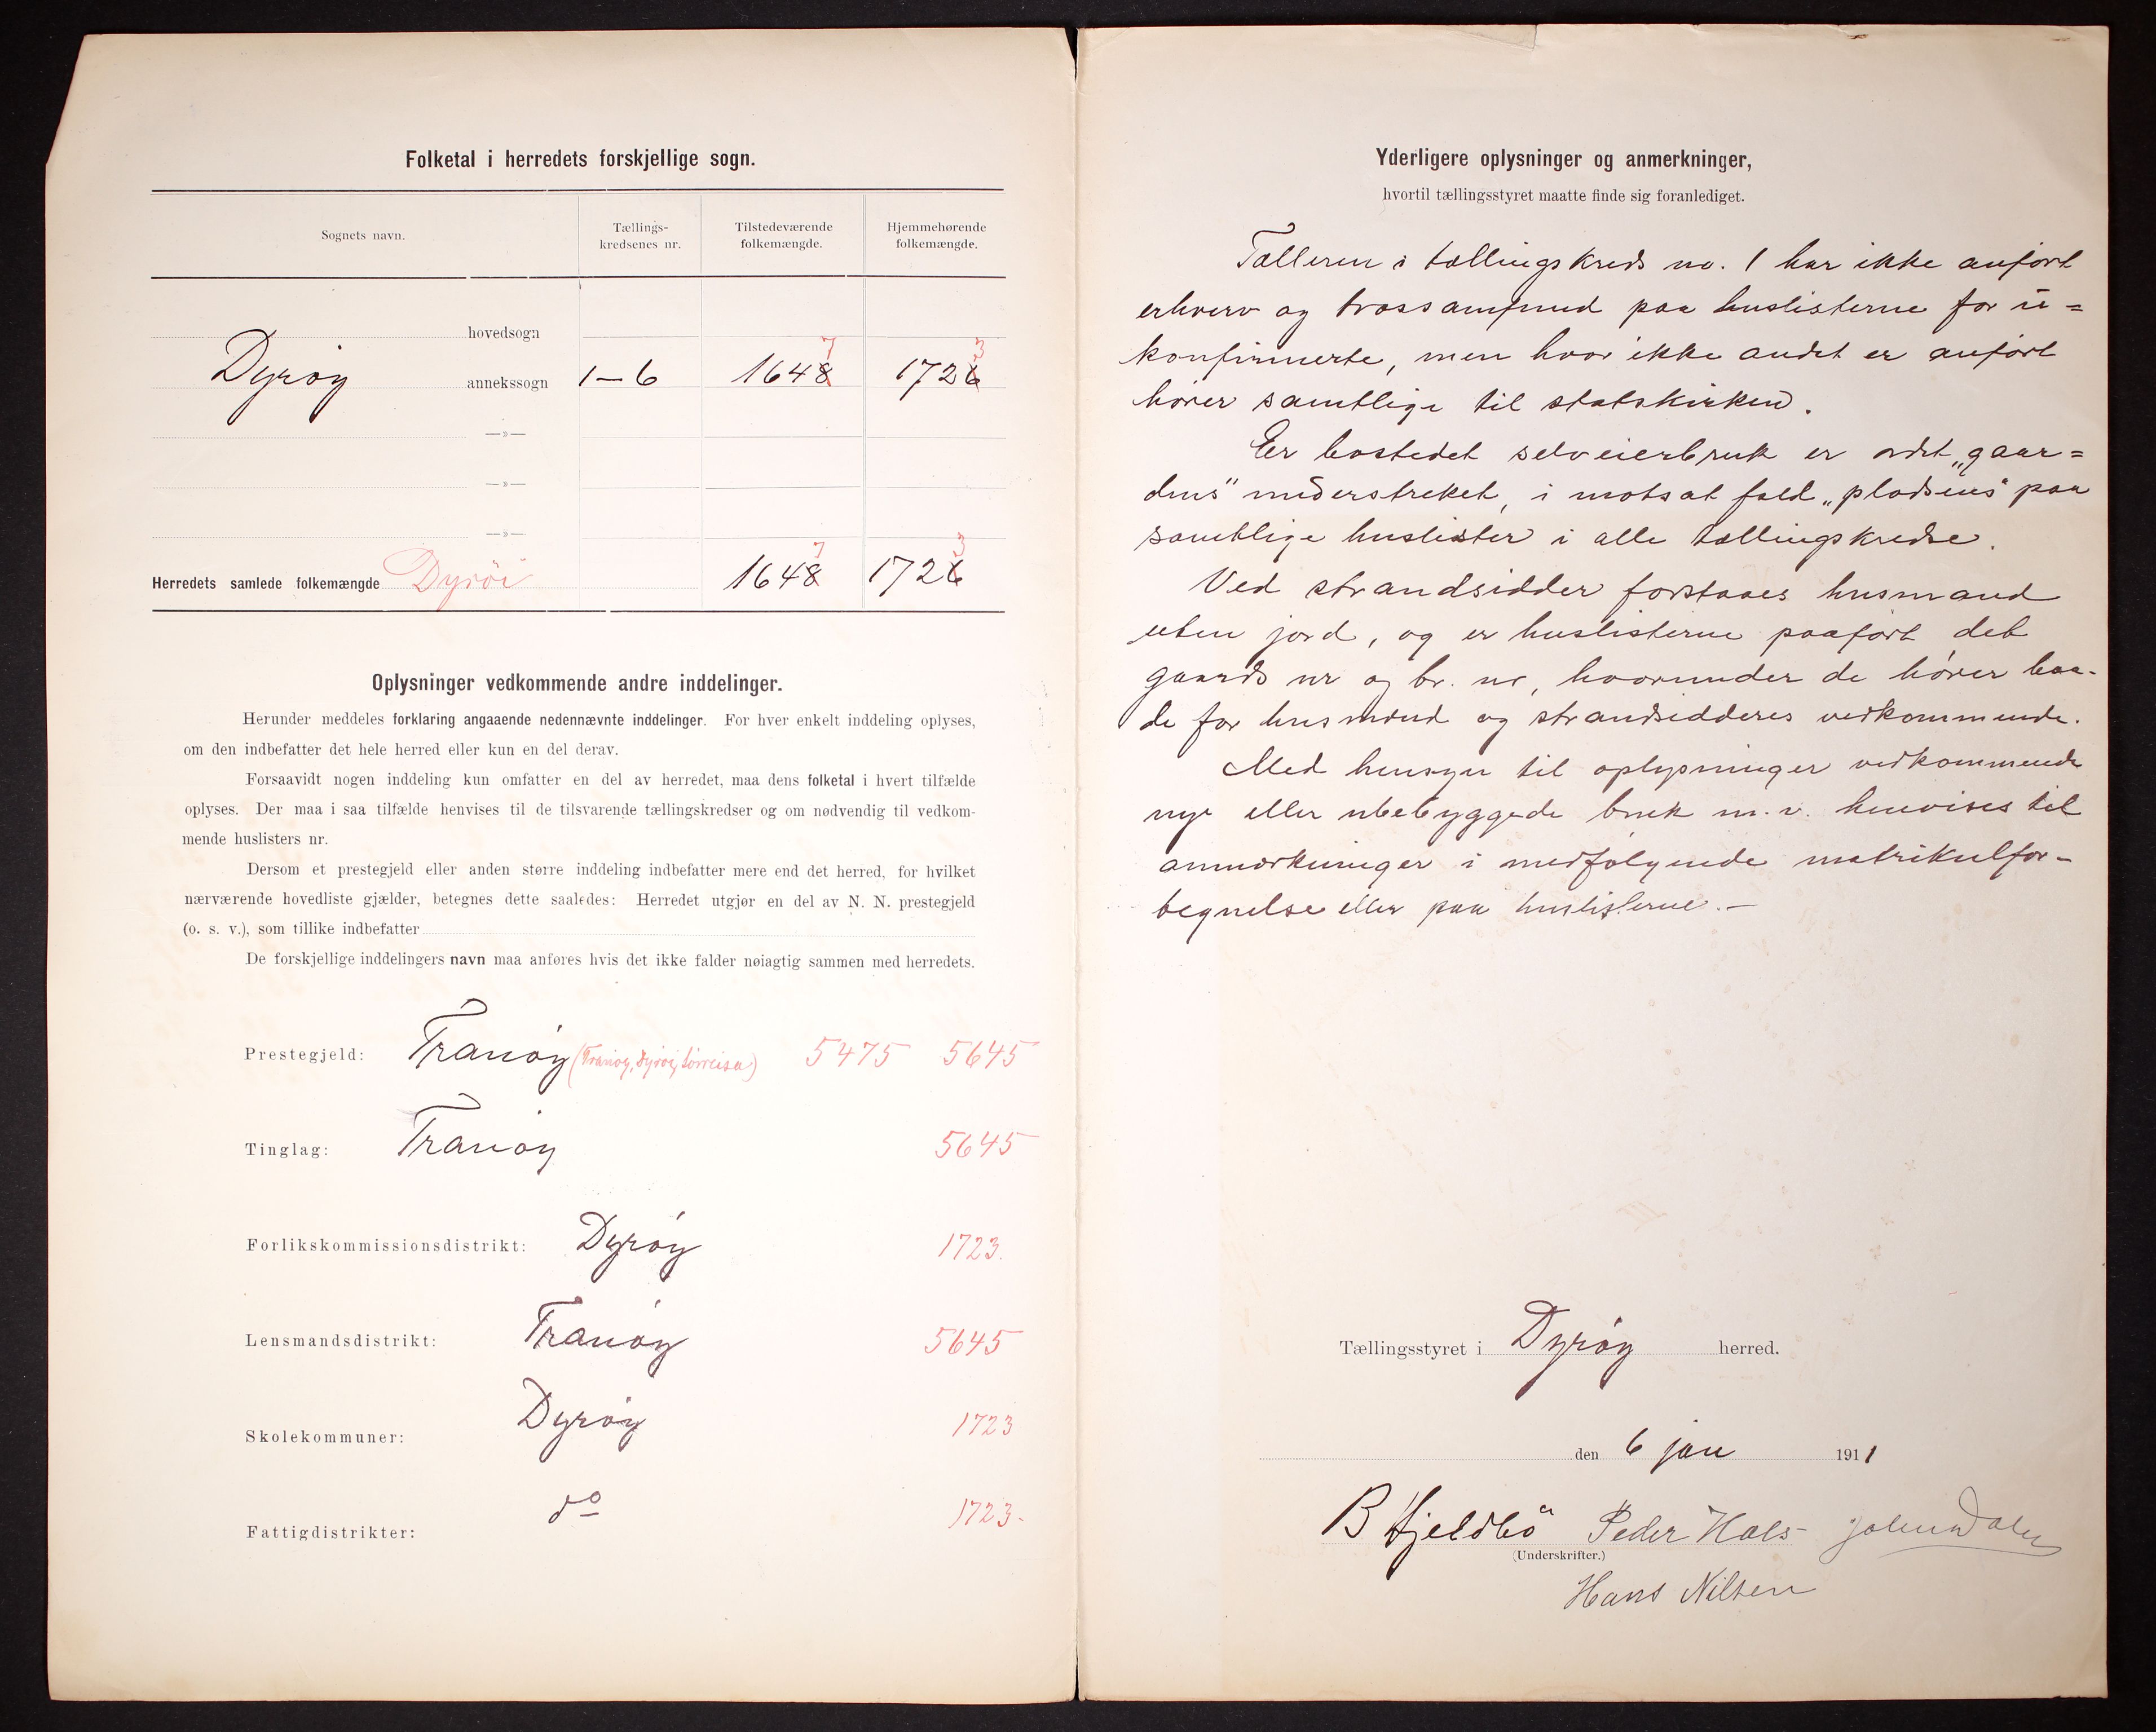 Folketal i herredets forskjellige sogn.
Sognets navn.
Tællings-
kredsenes nr.
Tilstedeværende
folkemængde.
Hjemmehørende
folkemængde.
hovedsogn
Dyrøy annekssogn 1–6 1648 7 1726 3
—»—
—»—
—»—
Herredets samlede folkemængde Dyröi 1648 7 1726 3
Oplysninger vedkommende andre inddelinger.
Herunder meddeles forklaring angaaende nedennævnte inddelinger. For hver enkelt inddeling oplyses,
om den indbefatter det hele herred eller kun en del derav.
Forsaavidt nogen inddeling kun omfatter en del av herredet, maa dens folketal i hvert tilfælde
oplyses. Der maa i saa tilfælde henvises til de tilsvarende tællingskredser og om nødvendig til vedkom-
mende huslisters nr.
Dersom et prestegjeld eller anden større inddeling indbefatter mere end det herred, for hvilket
nærværende hovedliste gjælder, betegnes dette saaledes: Herredet utgjør en del av N. N. prestegjeld
(o. s. v.), som tillike indbefatter
De forskjellige inddelingers navn maa anføres hvis det ikke falder nøiagtig sammen med herredets.
Prestegjeld: Tranøy (Tranøy, Dyrøy, Sørreisa) 5475 5645
Tinglag: Tranøy 5645
Forlikskommissionsdistrikt: Dyrøy 1723.
Lensmandsdistrikt: Tranøy 5645
Skolekommuner: Dyrøy 1723
Fattigdistrikter: do 1723-
Yderligere oplysninger og anmerkninger,
hvortil tællingsstyret maatte finde sig foranlediget.
Tælleren i tællingskreds no. 1 har ikke anført
erhverv og trossamfund paa huslisterne for u=
konfirmerte, men hvor ikke andet er anført
hører samtlige til statskirken.
Er bostedet selveierbruk er ordet „gaar=
dens" understreket, i motsat fald „pladsens" paa
samtlige huslister i alle tællingskredse.
Ved strandsidder forstaaes husmand
uten jord, og er huslisterne paaført det
gaards nr og br. nr, hvorunder de hører baa-
de for husmænd og strandsidderes vedkommende.
Med hensyn til oplysninger vedkommende
nye eller ubebyggede bruk m. v. henvises til
anmærkninger i medfølgende matrikulfor-
tegnelse eller paa huslisterne.—
Tællingsstyret i Dyrøy herred.
den 6 jan 1911
B Hjeldbö Peder Hals
(Underskrifter.)
Hans Nilsen